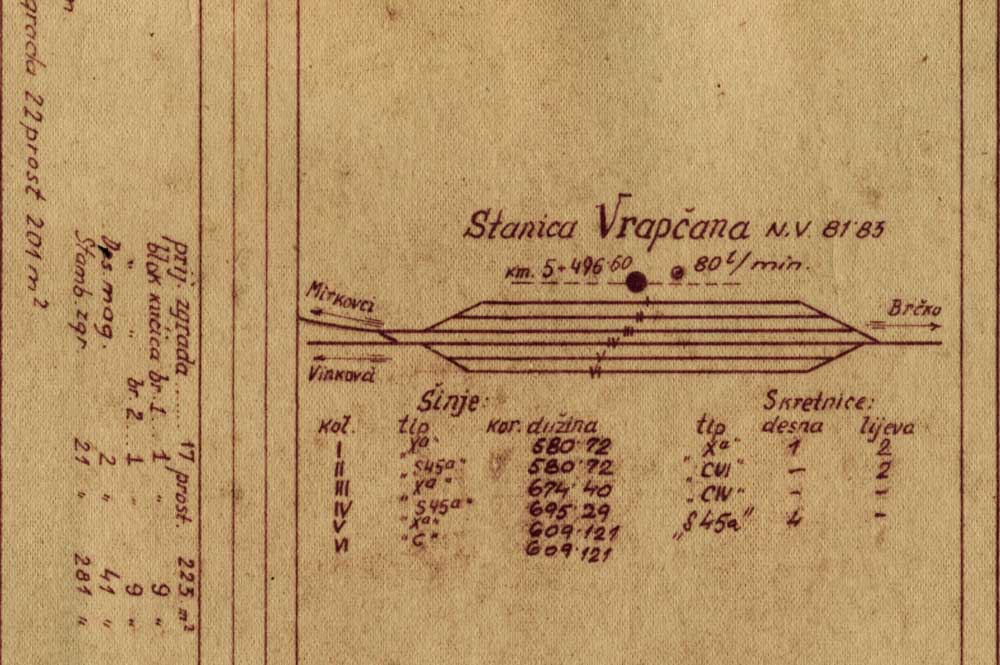 grada 22 prost 201 m²
prij. zgrada ...... 17 prost. 225 m²
blok kućica br. 1 ... 1 " 9 "
" " br. 2 ... 1 " 9 "
mog. 2 " 41 "
Stamb. zgr. 21 " 281 "
Stanica Vrapčana N.V. 81·83
km. 5+496·60 80 l/min.
Mirkovci
Brčko
Vinkovci
I II III IV V VI
Šinje: Skretnice:
kol. tip kor. dužina tip desna lijeva
I "Xa" 580·72 "Xa" 1 2
II "S45a" 580·72 "CVI" - 2
III "Xa" 674·40 "CIV" - -
IV "S45a" 695·29 „S45a" 4 -
V "Xa" 609·121
VI "C" 609·121